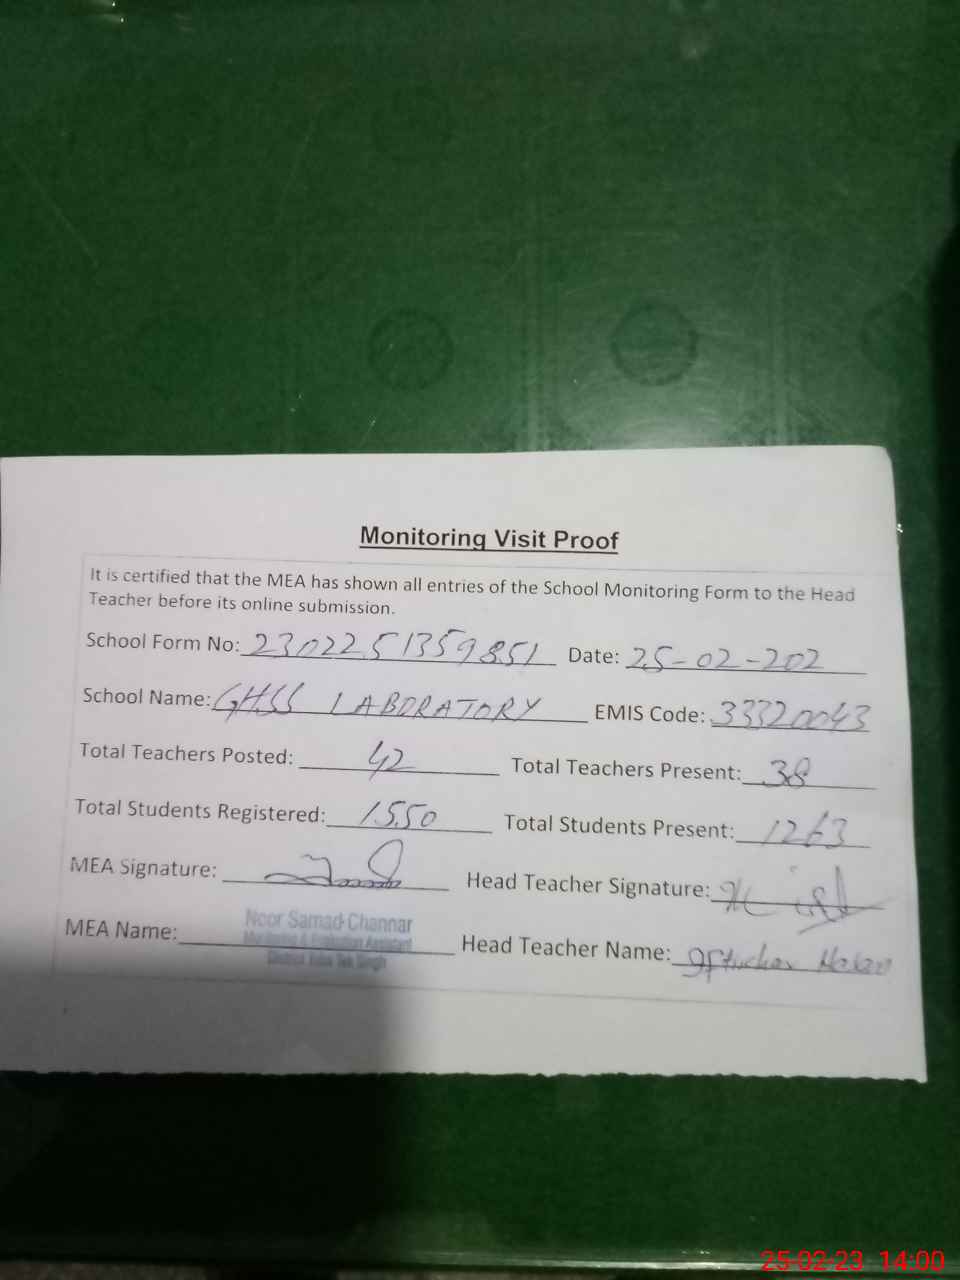 Monitoring Visit Proof
It is certified that the MEA has shown all entries of the School Monitoring Form to the Head
Teacher before its online submission.
School Form No: 2302251359851 Date: 25-02-202
School Name: GHSS LABORATORY EMIS Code: 33320043
Total Teachers Posted: 42 Total Teachers Present: 38
Total Students Registered: 1550 Total Students Present: 1263
MEA Signature: Head Teacher Signature:
Noor Samad Channar
MEA Name: Head Teacher Name:
Monitoring & Evaluation Assistant
District Toba Tek Singh
25-02-23 14:00